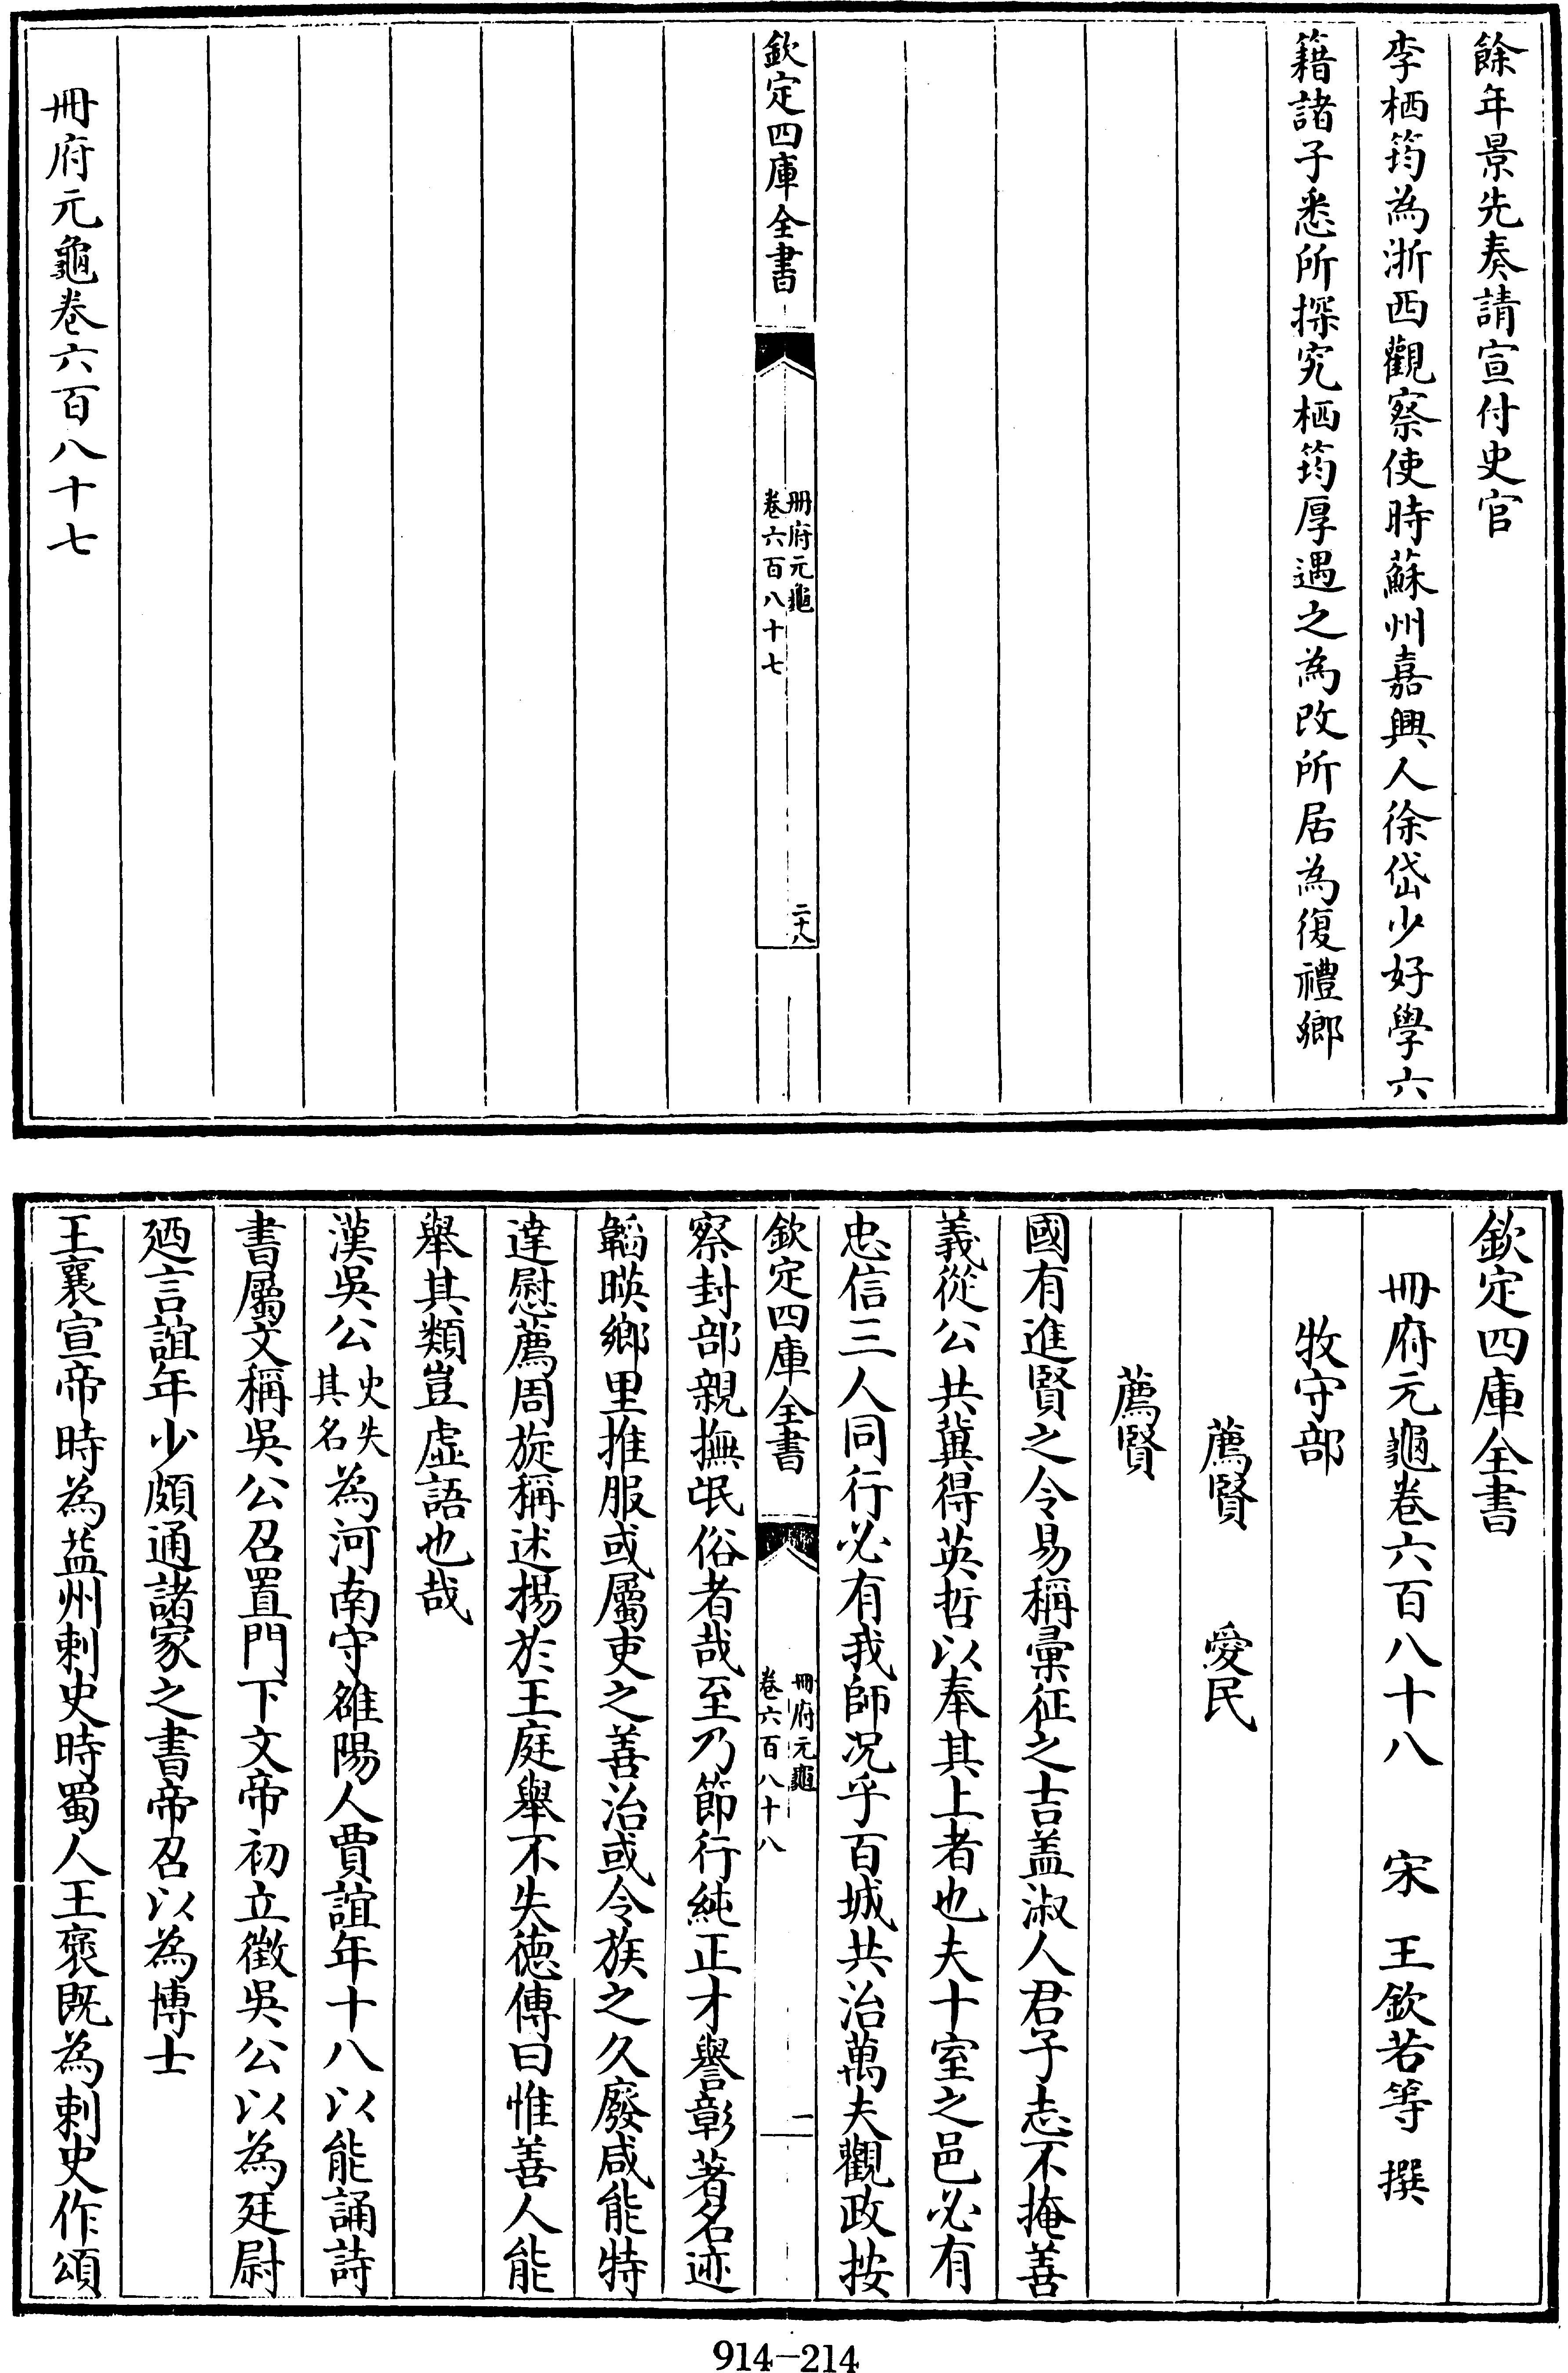 餘年景先奏請宣付史官
李栖筠為浙西觀察使時蘇州嘉興人徐岱少好學六
籍諸子悉所探究栖筠厚遇之為改所居為復禮鄉
欽定四庫全書
冊府元龜
卷六百八十七
二十八
冊府元龜卷六百八十七
欽定四庫全書
冊府元龜卷六百八十八 宋 王欽若等 撰
牧守部
薦賢 愛民
薦賢
國有進賢之令易稱彙征之吉盖淑人君子志不掩善
義從公共冀得英哲以奉其上者也夫十室之邑必有
忠信三人同行必有我師況乎百城共治萬夫觀政按
欽定四庫全書
冊府元龜
卷六百八十八
一
察封部親撫氓俗者哉至乃節行純正才譽彰著名迹
韜暎鄉里推服或屬吏之善治或令族之久廢咸能特
達慰薦周旋稱述揚於王庭舉不失德傳曰惟善人能
舉其類豈虛語也哉
漢吳公史失其名為河南守雒陽人賈誼年十八以能誦詩
書屬文稱吳公召置門下文帝初立徵吳公以為廷尉
廼言誼年少頗通諸家之書帝召以為博士
王襄宣帝時為益州刺史時蜀人王褒既為刺史作頌
914-214